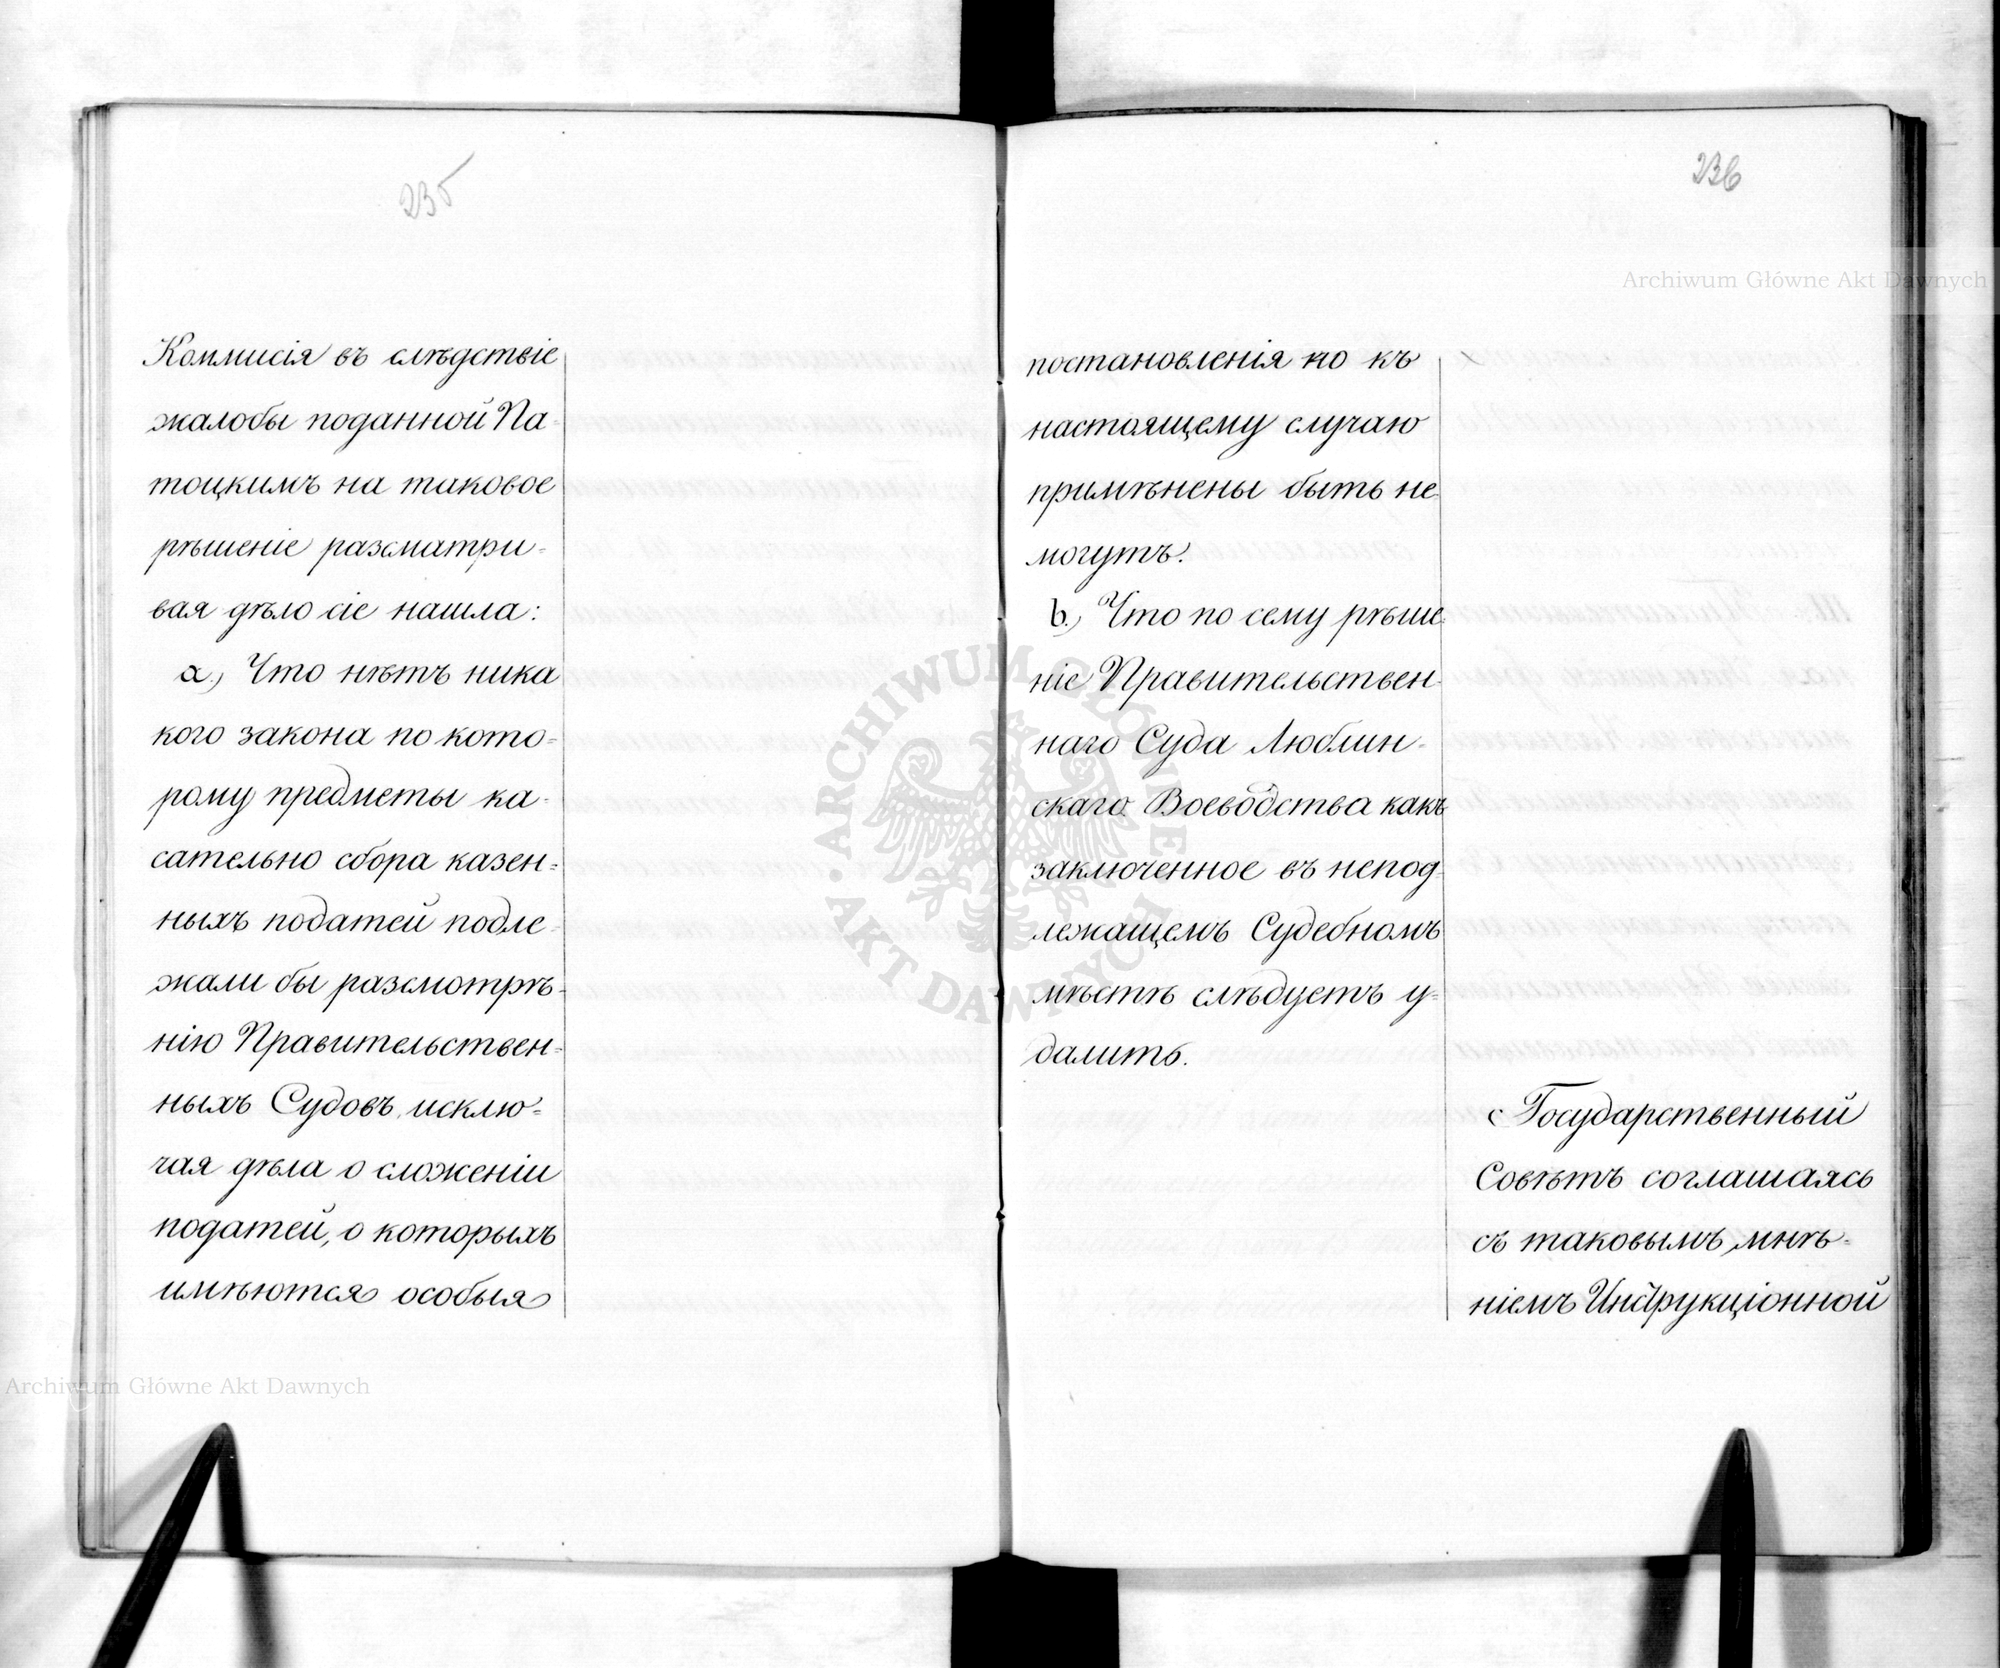 235
Коммисія въ слѣдствіе
жалобы поданной Па-
тоцкимъ на таковое
рѣшеніе разсматри-
вая дѣло сіе нашла:
а.) Что нѣтъ ника
кого закона по кото-
рому предметы ка-
сательно сбора казен-
ныхъ податей подле-
жали бы разсмотрѣ-
нію Правительствен-
ныхъ Судовъ, исклю-
чая дѣла о сложеніи
податей, о которыхъ
имѣются особыя
236
постановленія но къ
настоящему случаю
примѣнены быть не
могутъ.
b.) Что по сему рѣше-
ніе Правительствен-
наго Суда Люблин-
скаго Воеводства какъ
заключенное въ непод-
лежащемъ Судебномъ
мѣстѣ слѣдуетъ у-
далить.
Государственный
Совѣтъ соглашаясь
съ таковымъ мнѣ-
ніемъ Инструкціонной
Archiwum Główne Akt Dawnych
ARCHIWUM GŁÓWNE AKT DAWNYCH
Archiwum Główne Akt Dawnych